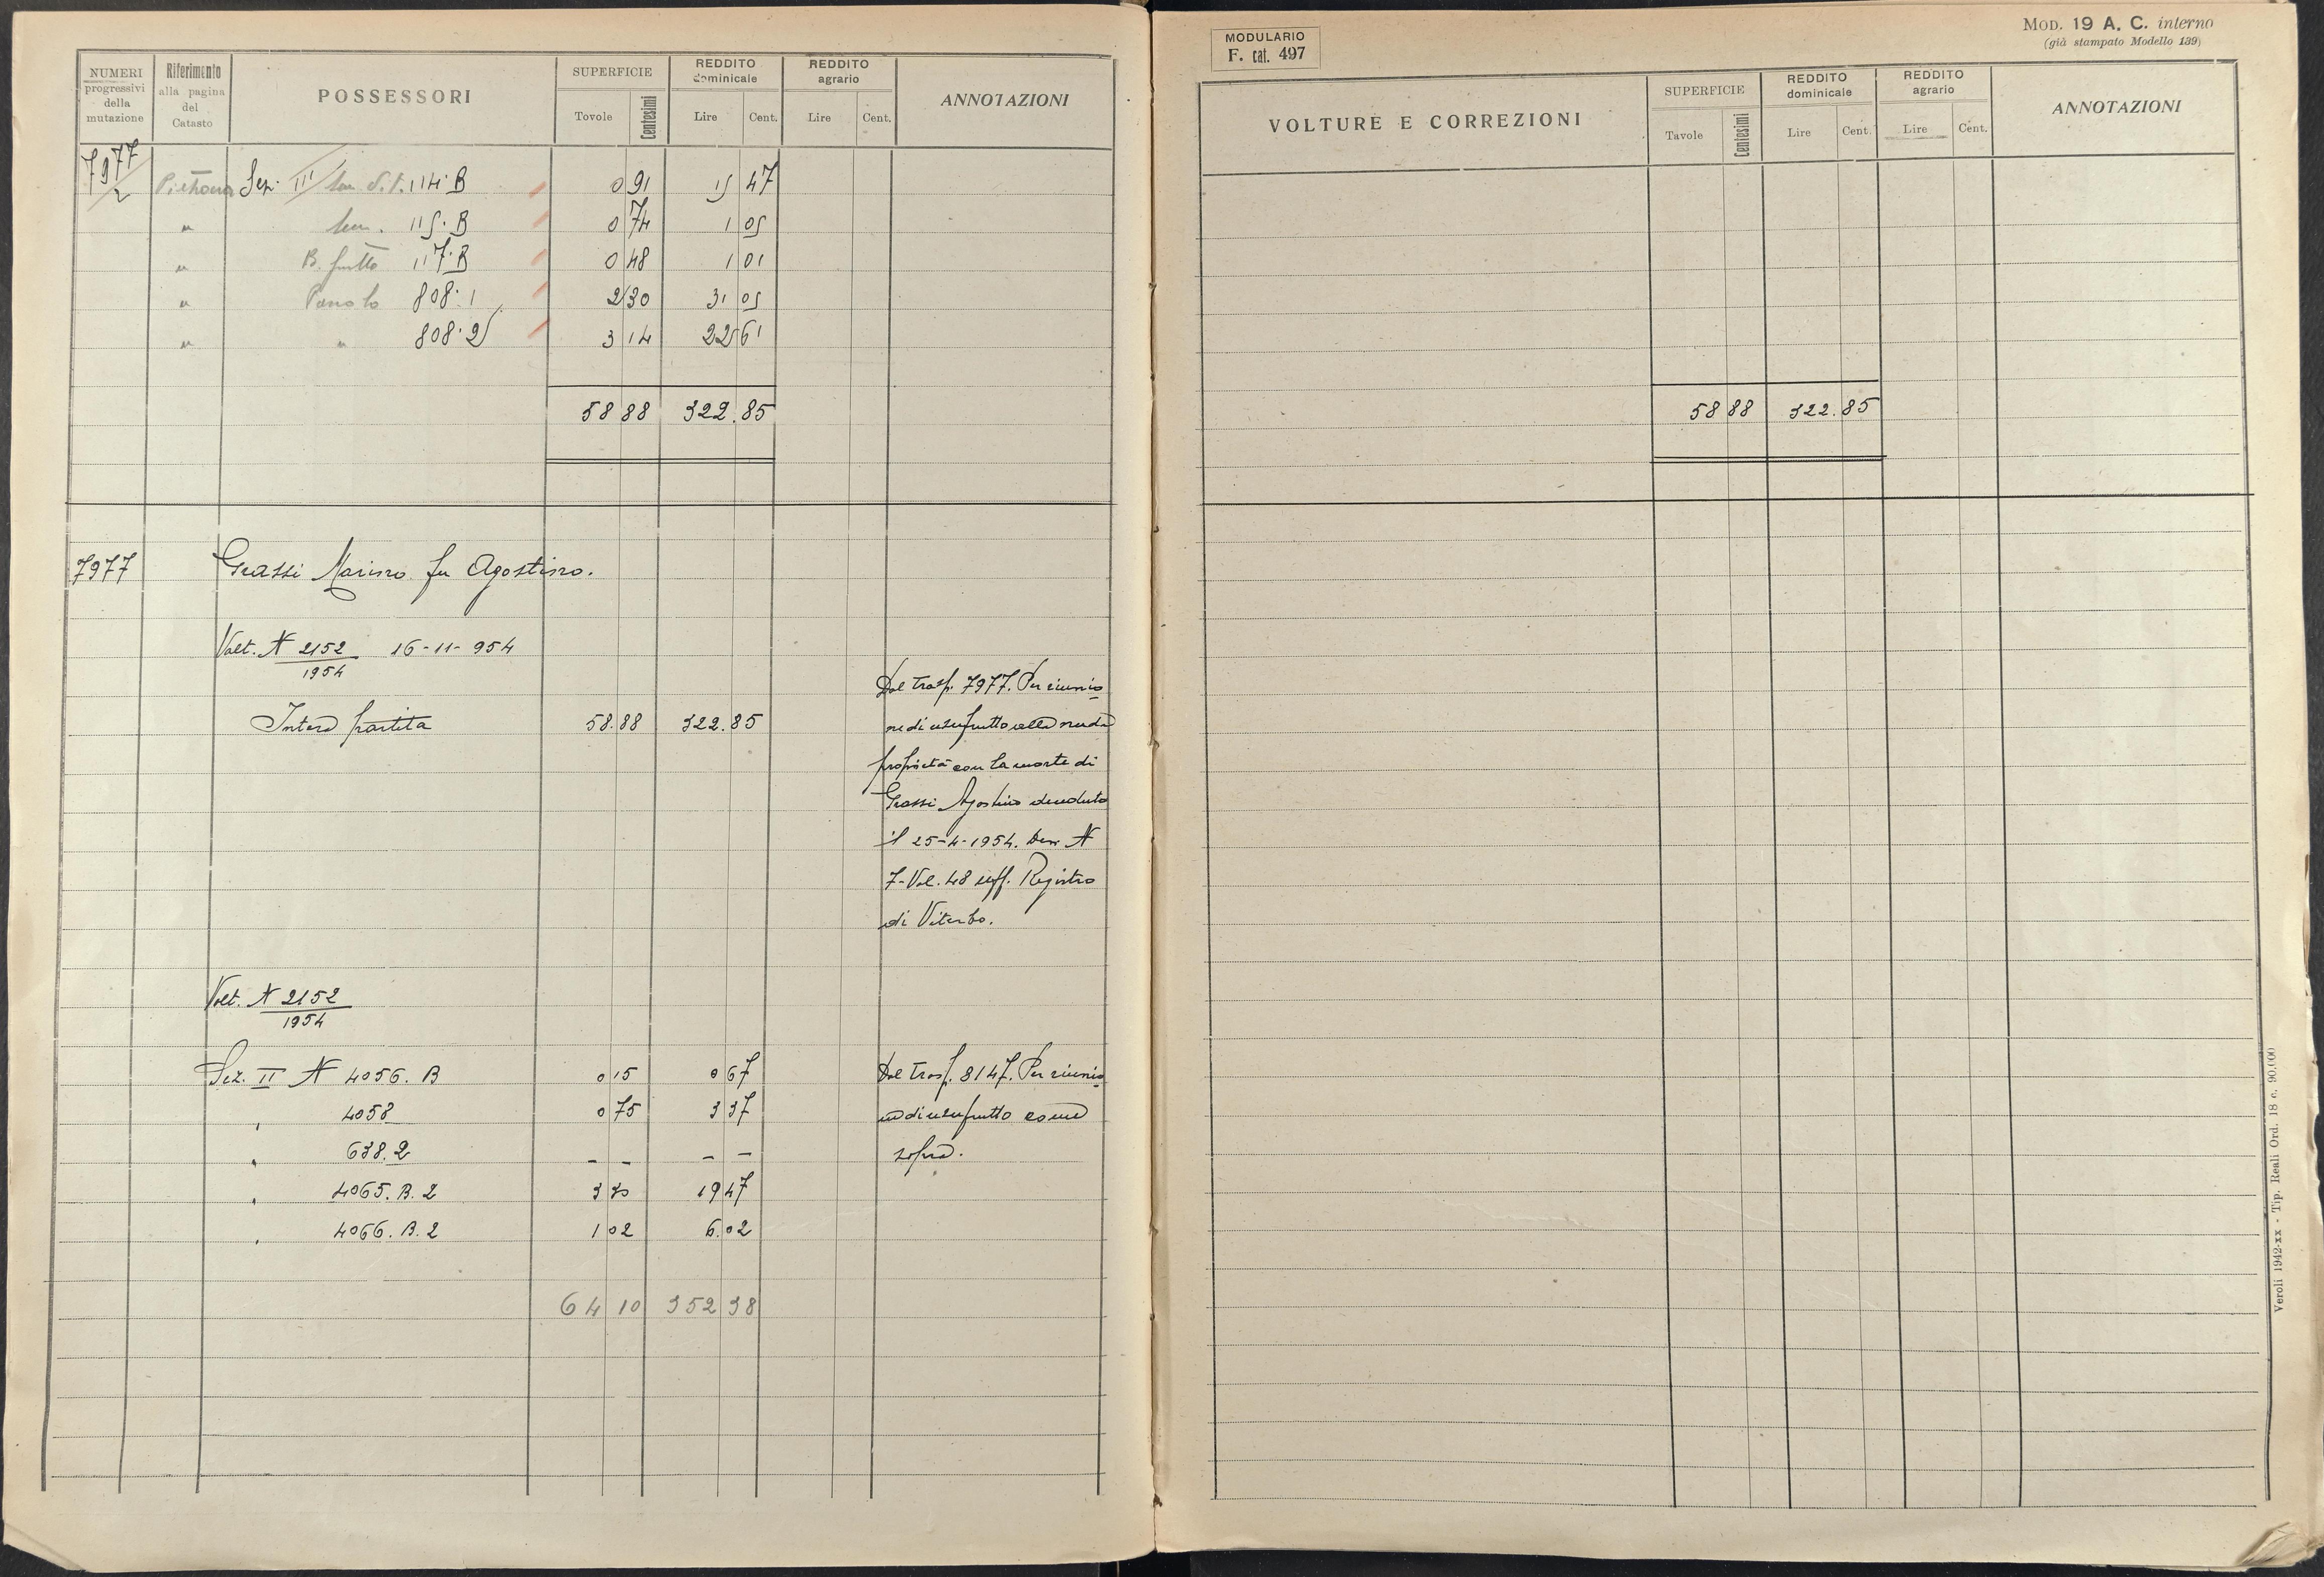 NUMERI progressivi della mutazione
Riferimento alla pagina del Catasto
POSSESSORI
SUPERFICIE
Tovole Centesimi
REDDITO dominicale
Lire Cent.
REDDITO agrario
Lire Cent.
ANNOTAZIONI
7977/2 Sez. III 114·B 0 91 15 47
" Sem. 115·B 0 74 1 05
" B. frutto 117·B 0 48 1 01
" 808·1 2 30 31 05
" " 808·2 3 14 22 61
58 88 322.85
7977 Grassi Marino fu Agostino.
Volt. N 2152/1954 16-11-954
Intera partita 58.88 322.85
Dal trasp. 7977. Per riunio
ne di usufrutto alla nuda
proprietà con la morte di
Grassi Agostino deceduto
il 25-4-1954. Den N
7-Vol. 48 uff. Registro
di Viterbo.
Volt. N 2152/1954
Sez. II N 4056. B 0 15 0 67 Dal trasp. 8147. Per riunio
" 4058 0 75 3 37 ne di usufrutto come
" 638.2 - - - - sopra.
" 4065. B. 2 3 30 19 47
" 4066. B. 2 1 02 6.02
64 10 352 38
MODULARIO
F. cat. 497
MOD. 19 A. C. interno
(già stampato Modello 139)
VOLTURE E CORREZIONI
SUPERFICIE
Tavole Centesimi
REDDITO dominicale
Lire Cent.
REDDITO agrario
Lire Cent.
ANNOTAZIONI
58 88 322.85
Veroli 1942-XX - Tip. Reali Ord. 18 c. 90.000